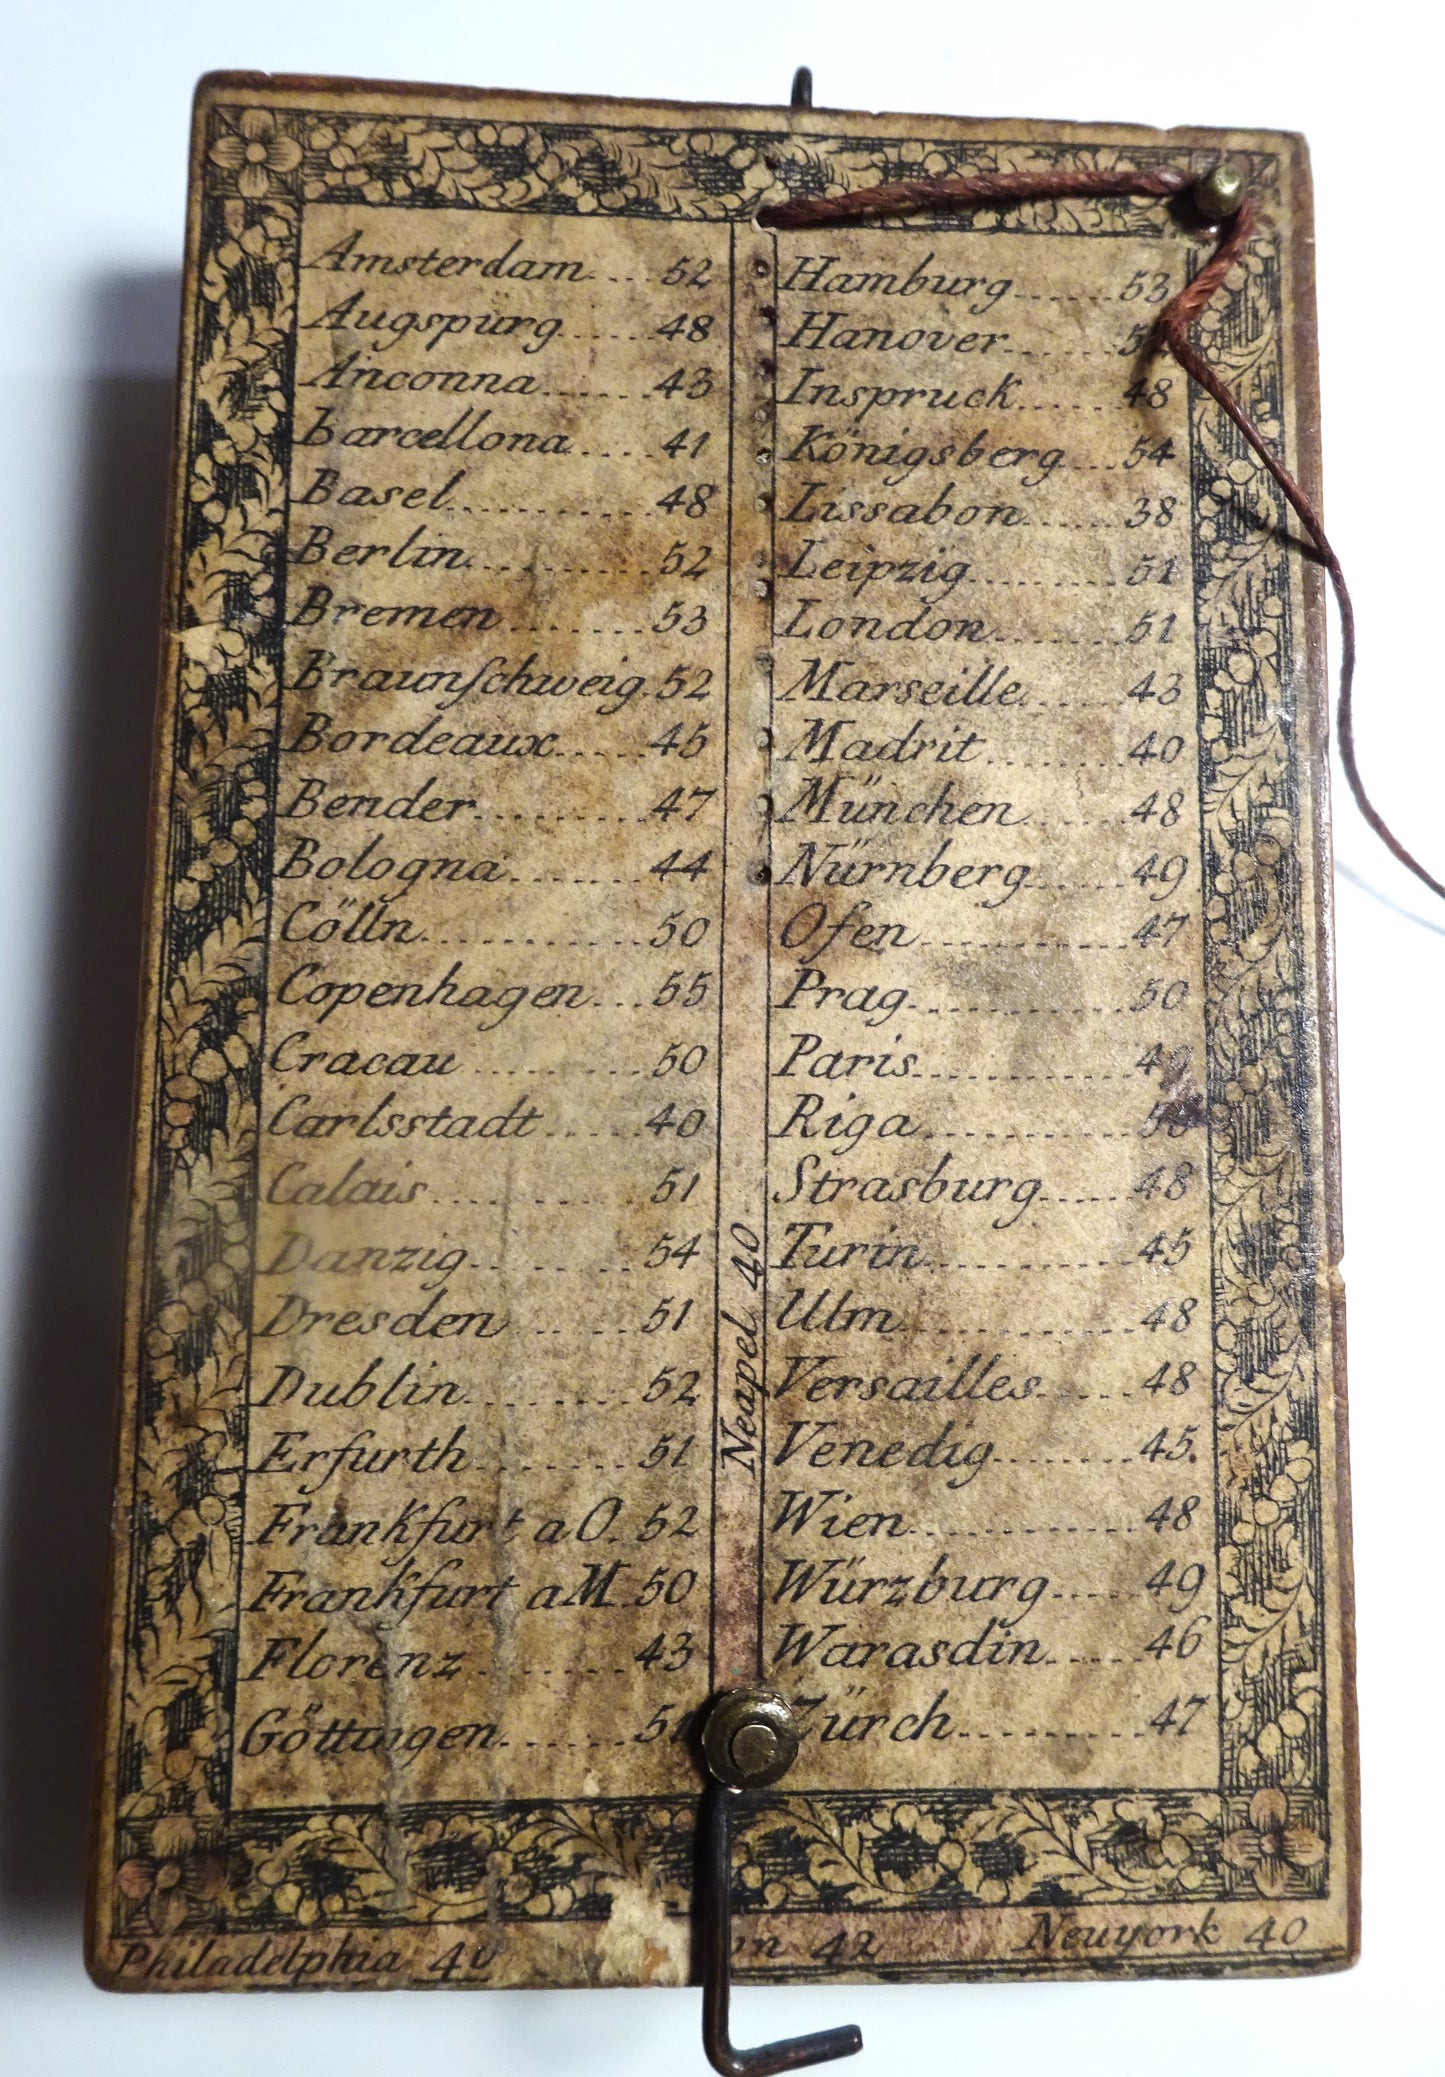 Amsterdam....52
Augspürg......48
Anconna......43
Barcellona.....41
Basel...........48
Berlin..........52
Bremen........53
Braunſchweig.52
Bordeaux......45
Bender.........47
Bologna........44
Cölln............50
Copenhagen...55
Cracau.........50
Carlsstadt.....40
Calais..........51
Danzig.........54
Dresden.......51
Dublin.........52
Erfurth........51
Frankfurt a O. 52
Frankfurt aM. 50
Florenz........43
Göttingen......51
Neapel 40
Hamburg......53
Hanover.......
Inspruck......48
Königsberg...54
Lissabon......38
Leipzig........51
London.......51
Marseille.....43
Madrit........40
München.....48
Nürnberg.....49
Ofen...........47
Prag...........50
Paris..........49
Riga...........
Strasburg.....48
Turin..........45
Ulm...........48
Versailles.....48
Venedig.......45.
Wien..........48
Würzburg....49
Warasdin.....46
Zürch.........47
Philadelphia 40 42 Neuyork 40